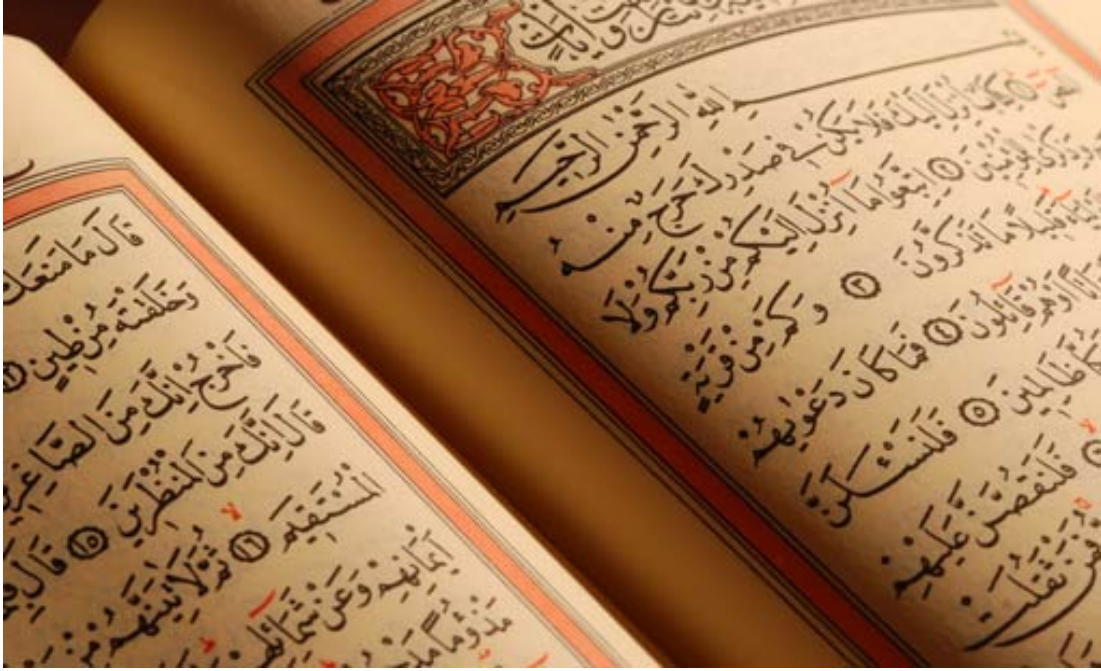 بِسْمِ اللهِ الرَّحْمٰنِ الرَّحِيمِ
الٓمٓصٓ ١ كِتَابٌ اُنْزِلَ اِلَيْكَ فَلَا يَكُنْ فِي صَدْرِكَ حَرَجٌ مِنْهُ
وَذِكْرٰى لِلْمُؤْمِنِينَ ٢ اِتَّبِعُوا مَٓا اُنْزِلَ اِلَيْكُمْ مِنْ رَبِّكُمْ وَلَا
قَلِيلًا مَا تَذَكَّرُونَ ٣ وَكَمْ مِنْ قَرْيَةٍ
اَوْ هُمْ قَٓائِلُونَ ٤ فَمَا كَانَ دَعْوٰيهُمْ
ظَالِمِينَ ٥ فَلَنَسْـَٔلَنَّ
فَلَنَقُصَّنَّ عَلَيْهِمْ
فَمَنْ ثَقُلَتْ
قَالَ مَا مَنَعَكَ
وَخَلَقْتَهُ مِنْ طِينٍ ١٢
فَاخْرُجْ اِنَّكَ مِنَ الصَّاغِرِينَ
قَالَ اِنَّكَ مِنَ الْمُنْظَرِينَ ١٥ قَالَ
الْمُسْتَقِيمَ ١٦ ثُمَّ لَاٰتِيَنَّهُمْ مِنْ
اَيْمَانِهِمْ وَعَنْ شَمَٓائِلِهِمْ
مَذْؤُمًا